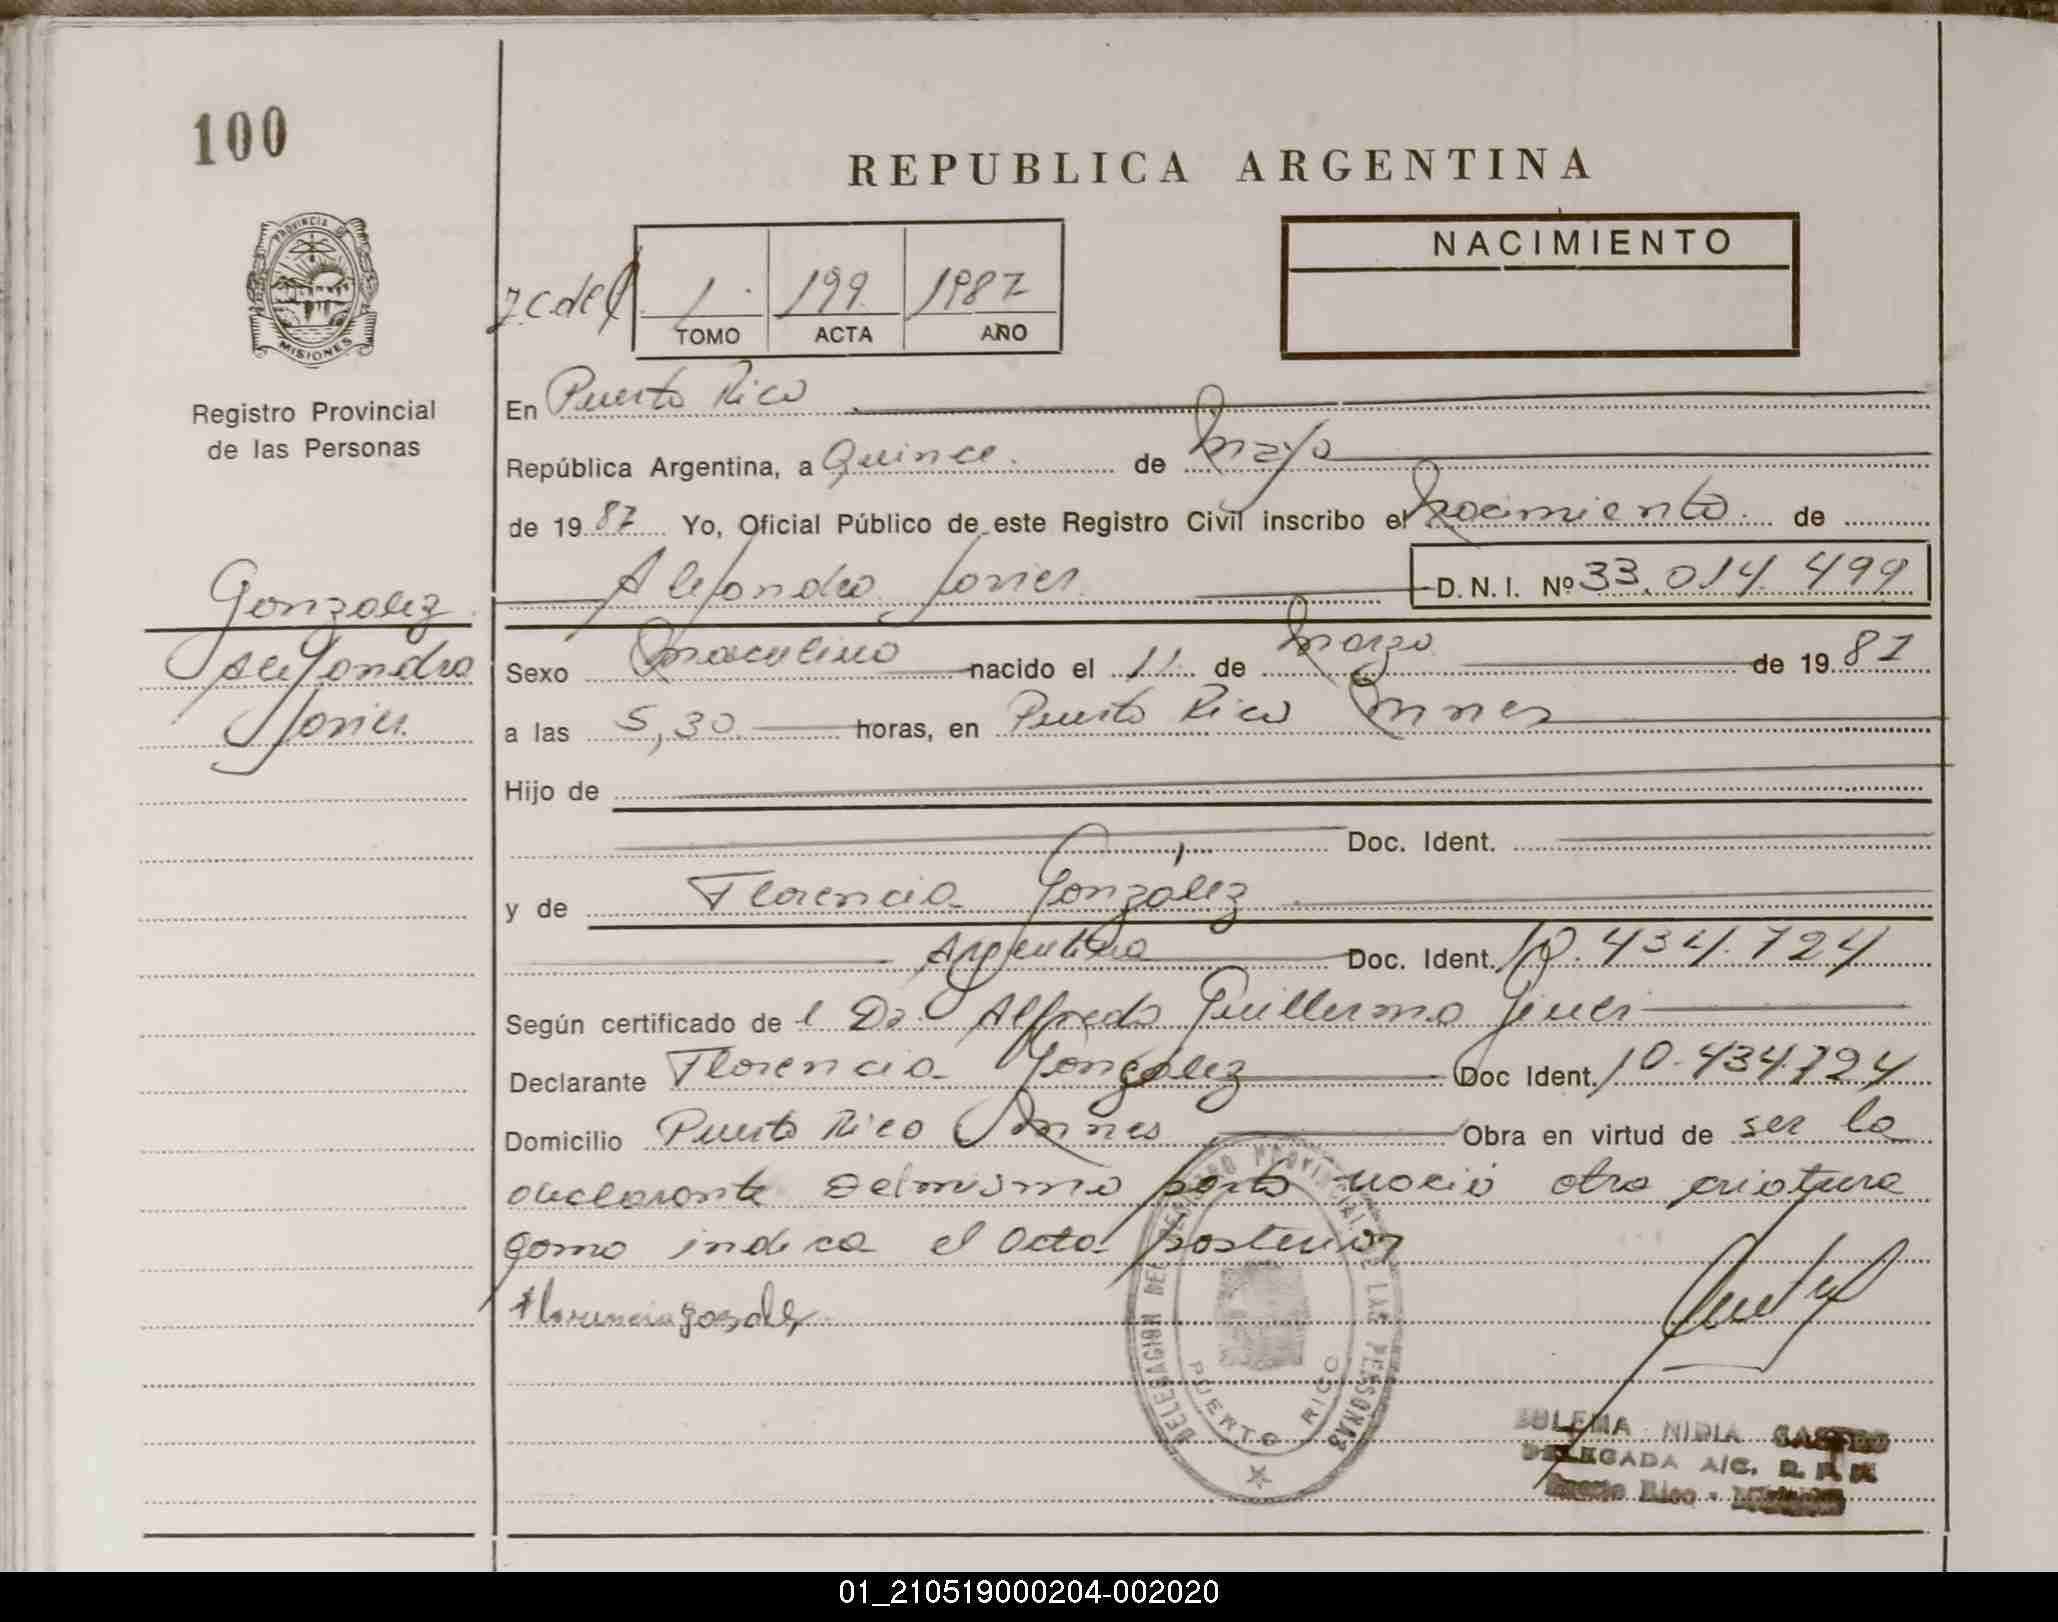 100
REPUBLICA ARGENTINA
PROVINCIA DE
MISIONES
Registro Provincial
de las Personas
1 199 1987
TOMO ACTA AÑO
NACIMIENTO
Gonzalez
Alejandro
Javier
En Puerto Rico
República Argentina, a Quince de Mayo
de 1987 Yo, Oficial Público de este Registro Civil inscribo el Nacimiento de
Alejandro Javier D. N. I. Nº 33.014.499
Sexo Masculino nacido el 11 de Marzo de 1987
a las 5,30 horas, en Puerto Rico Mnes
Hijo de
Doc. Ident.
y de Florencia González
Argentina Doc. Ident. 10.434.724
Según certificado de l Dr. Alfredo Guillermo
Declarante Florencia González Doc Ident. 10.434.724
Domicilio Puerto Rico Mnes Obra en virtud de ser la
declarante del mismo parto nació otra criatura
como indica el acta posterior
Florencia Gonzalez
DELEGACION DEL REGISTRO PROVINCIAL DE LAS PERSONAS
PUERTO RICO
ZULEMA NIDIA CASTRO
DELEGADA A/C. R. P. P.
Puerto Rico - Misiones
01_210519000204-002020